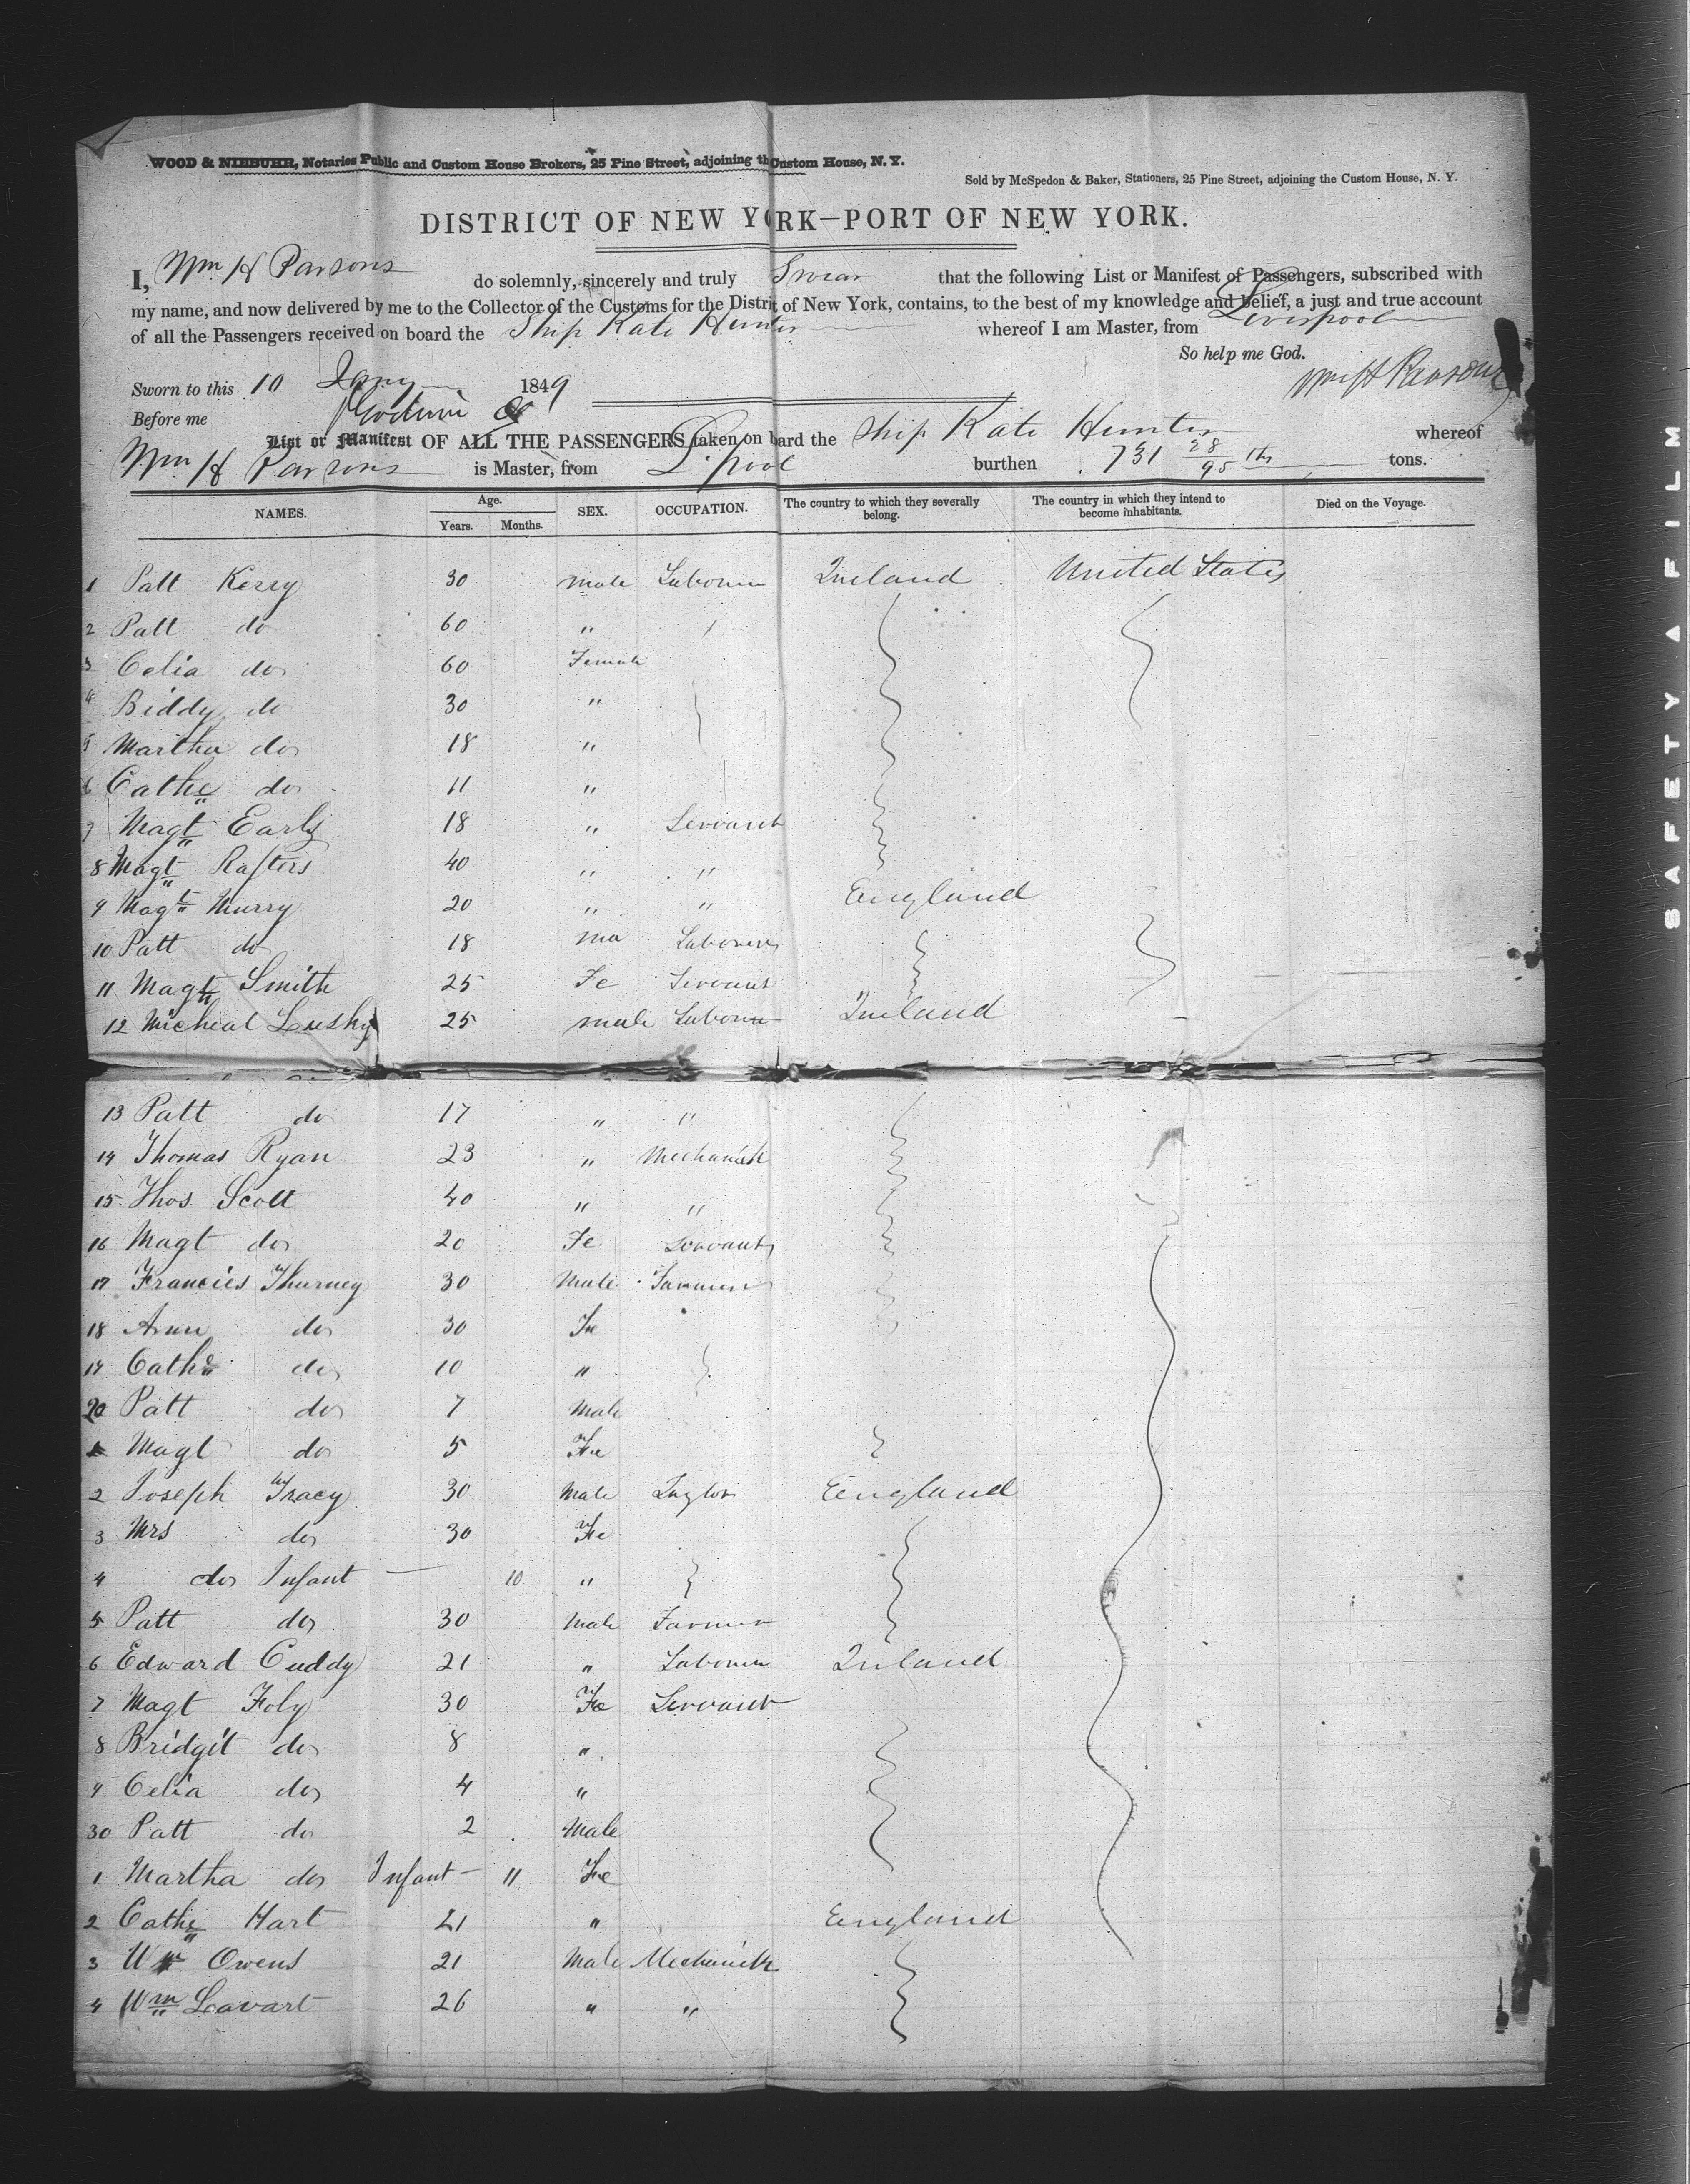 WOOD & NIEBUHR, Notaries Public and Custom House Brokers, 25 Pine Street, adjoining the Custom House, N. Y.
Sold by McSpedon & Baker, Stationers, 25 Pine Street, adjoining the Custom House, N. Y.
DISTRICT OF NEW YORK—PORT OF NEW YORK.
I, Wm H Parsons do solemnly, sincerely and truly Swear that the following List or Manifest of Passengers, subscribed with
my name, and now delivered by me to the Collector of the Customs for the District of New York, contains, to the best of my knowledge and belief, a just and true account
of all the Passengers received on board the Ship Kate Hunter whereof I am Master, from Liverpool
So help me God.
Sworn to this 10 Jany 1849 Wm H Parsons
Before me
List or Manifest OF ALL THE PASSENGERS taken on bard the Ship Kate Hunter whereof
Wm H Parsons is Master, from L.pool burthen 731 28/95 ths tons.
NAMES. Age. Years. Months. SEX. OCCUPATION. The country to which they severally belong. The country in which they intend to become inhabitants. Died on the Voyage.
1 Patt Kerry 30 male Labourer Ireland United States
2 Patt do 60 "
3 Celia do 60 Female
4 Biddy do 30 "
5 Martha do 18 "
6 Cathe do 11 "
7 Magt Early 18 " Servant
8 Magt Rafters 40 " "
9 Magt Murry 20 " " England
10 Patt do 18 ma Labourer
11 Magt Smith 25 Fe Servant
12 Micheal Lusky 25 male Labourer Ireland
13 Patt do 17 " "
14 Thomas Ryan 23 " Mechanick
15 Thos. Scott 40 " "
16 Magt do 20 Fe Servant
17 Francies Thurney 30 Male Farmer
18 Ann do 30 Fe
19 Cathe do 10 "
20 Patt do 7 Male
1 Magt do 5 Fe
2 Joseph Tracy 30 Male Taylor England
3 Mrs do 30 Fe
4 do Infant — 10 "
5 Patt do 30 Male Farmer
6 Edward Cuddy 21 " Labourer Ireland
7 Magt Foly 30 Fe Servant
8 Bridgit do 8 "
9 Celia do 4 "
30 Patt do 2 Male
1 Martha do Infant — 11 Fe
2 Cathe Hart 21 " England
3 Wm Owens 21 Male Mechanick
4 Wm Lavart 26 " "
SAFETY A FILM